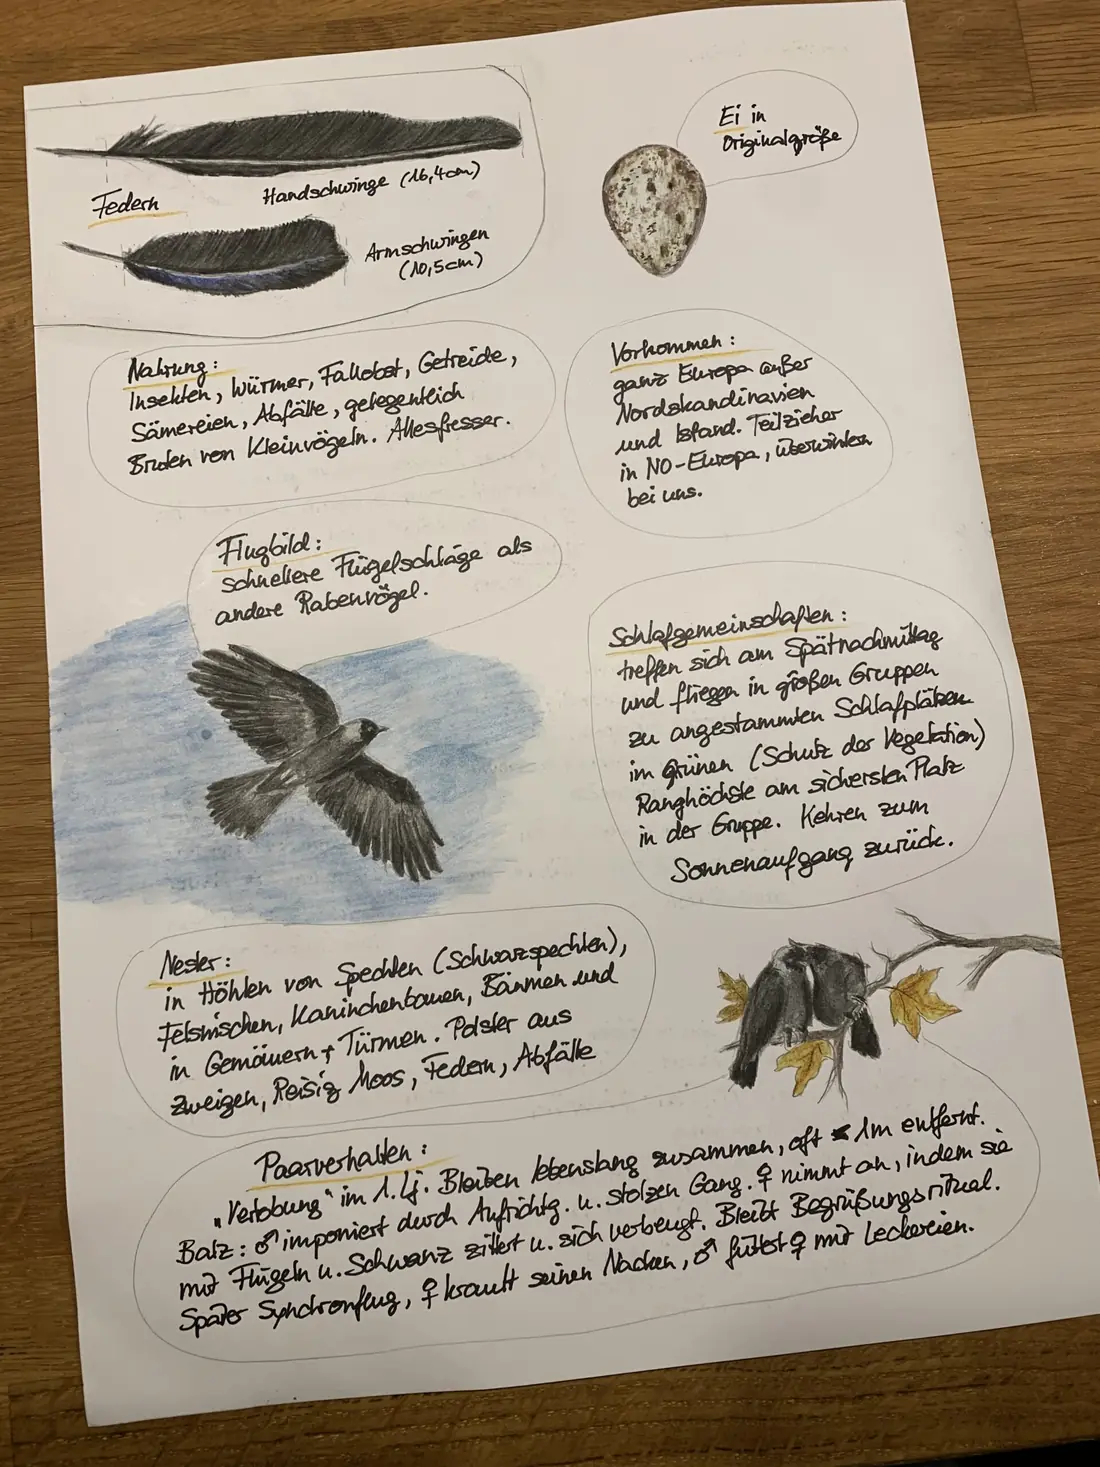 Federn
Handschwinge (16,4cm)
Armschwingen
(10,5cm)
Ei in
Originalgröße
Nahrung:
Insekten, Würmer, Fallobst, Getreide,
Sämereien, Abfälle, gelegentlich
Bruten von Kleinvögeln. Allesfresser.
Vorkommen:
ganz Europa außer
Nordskandinavien
und Island. Teilzieher
in NO-Europa, überwintern
bei uns.
Flugbild:
schnellere Flügelschläge als
andere Rabenvögel.
Schlafgemeinschaften:
treffen sich am Spätnachmittag
und fliegen in großen Gruppen
zu angestammten Schlafplätzen
im grünen (Schutz der Vegetation)
Ranghöchste am sichersten Platz
in der Gruppe. Kehren zum
Sonnenaufgang zurück.
Nester:
in Höhlen von Spechten (Schwarzspechten),
Felsnischen, Kaninchenbauen, Bäumen und
in Gemäuern + Türmen. Polster aus
Zweigen, Reisig Moos, Federn, Abfälle
Paarverhalten:
"Verlobung" im 1. Lj. Bleiben lebenslang zusammen, oft < 1m entfernt.
Balz: ♂ imponiert durch Aufrichtg. u. stolzen Gang. ♀ nimmt an, indem sie
mit Flügeln u. Schwanz zittert u. sich verbeugt. Bleibt Begrüßungsritual.
Später Synchronflug, ♀ krault seinen Nacken, ♂ füttert ♀ mit Leckereien.